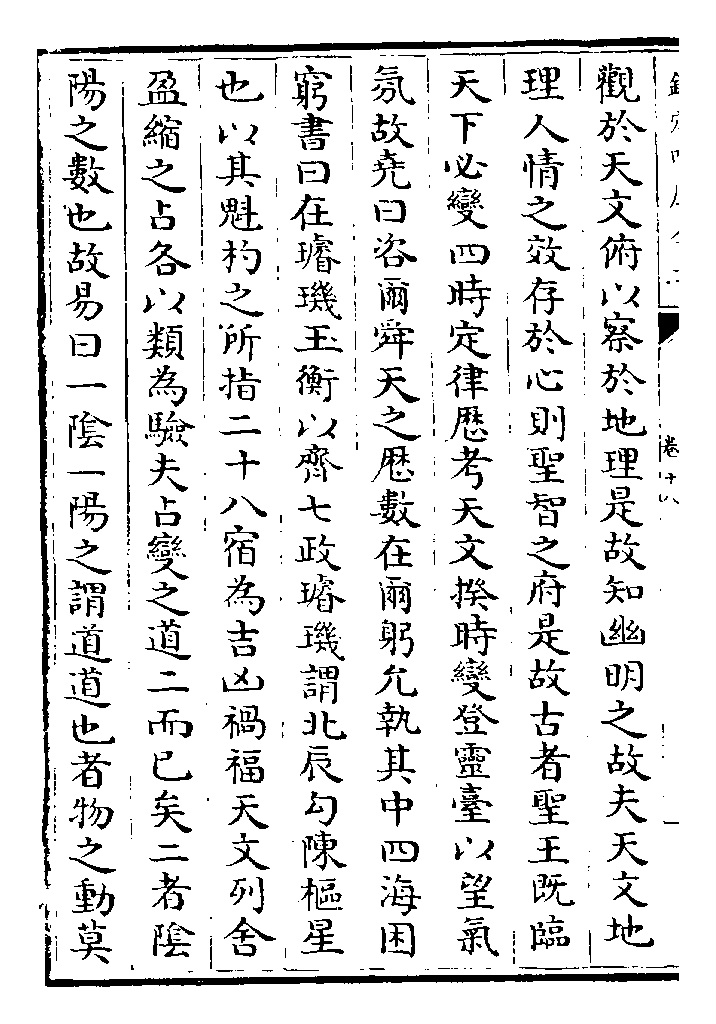 觀於天文俯以察於地理是故知幽明之故夫天文地
理人情之效存於心則聖智之府是故古者聖王既臨
天下必變四時定律歴考天文揆時變登靈臺以望氣
氛故堯曰咨爾舜天之厯數在爾躬允執其中四海困
窮書曰在璿璣玉衡以齊七政璿璣謂北辰勾陳樞星
也以其魁杓之所指二十八宿為吉凶禍福天文列舍
盈縮之占各以類為驗夫占變之道二而已矣二者隂
陽之數也故易曰一隂一陽之謂道道也者物之動莫
卷十八